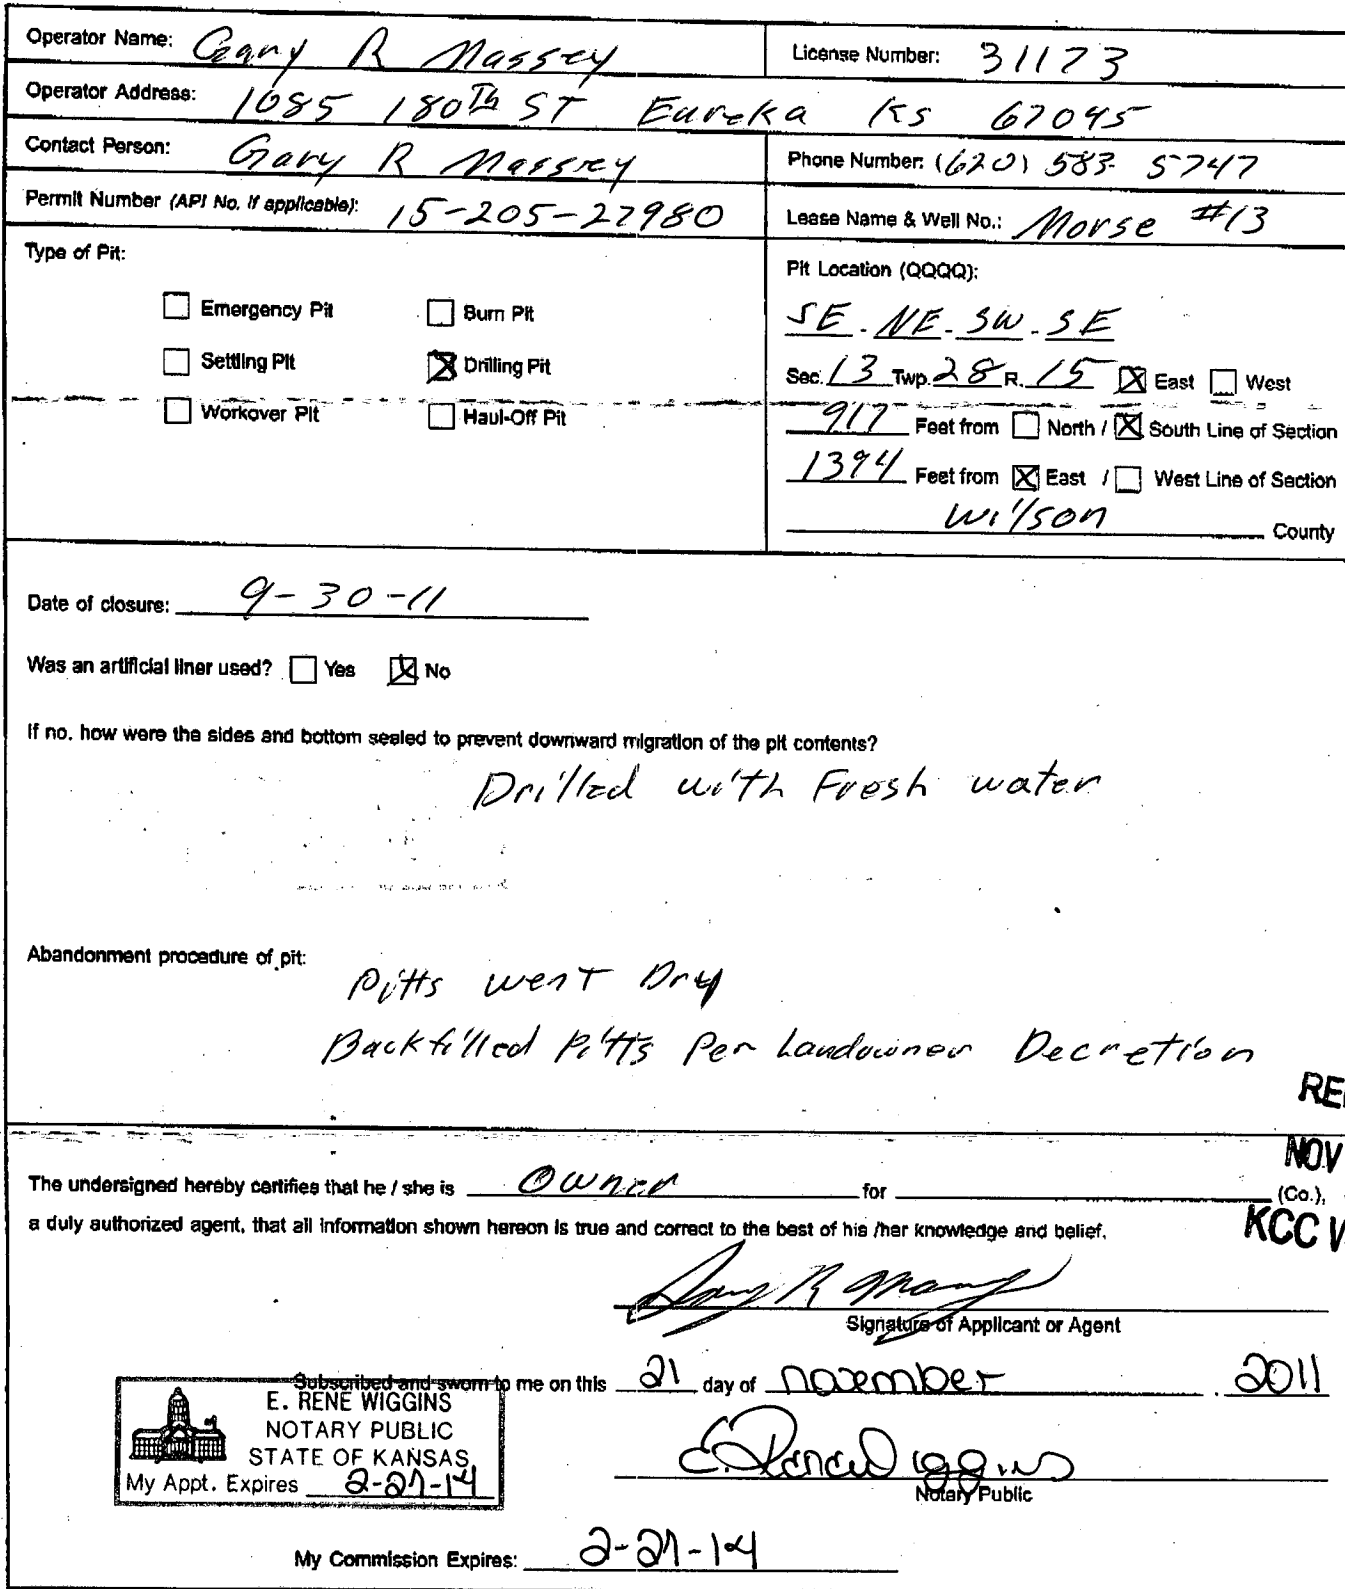 Operator Name: Gary R Massey License Number: 31173
Operator Address: 1085 180Th ST Eureka Ks 67045
Contact Person: Gary R Massey Phone Number: (620) 583-5747
Permit Number (API No. if applicable): 15-205-27980 Lease Name & Well No.: Morse #13
Type of Pit:
☐ Emergency Pit ☐ Burn Pit
☐ Settling Pit ☒ Drilling Pit
☐ Workover Pit ☐ Haul-Off Pit
Pit Location (QQQQ):
SE - NE - SW - SE
Sec. 13 Twp. 28 R. 15 ☒ East ☐ West
917 Feet from ☐ North / ☒ South Line of Section
1394 Feet from ☒ East / ☐ West Line of Section
Wilson County
Date of closure: 9-30-11
Was an artificial liner used? ☐ Yes ☒ No
If no, how were the sides and bottom sealed to prevent downward migration of the pit contents?
Drilled with Fresh water
Abandonment procedure of pit:
Pitts went Dry
Backfilled Pitts Per Landowner Decretion
RE
NOV
The undersigned hereby certifies that he / she is Owner for (Co.),
KCC W
a duly authorized agent, that all information shown hereon is true and correct to the best of his /her knowledge and belief.
Gary R Massey
Signature of Applicant or Agent
Subscribed and sworn to me on this 21 day of november, 2011
E. RENE WIGGINS
NOTARY PUBLIC
STATE OF KANSAS
My Appt. Expires 2-27-14
E. Rene Wiggins
Notary Public
My Commission Expires: 2-27-14